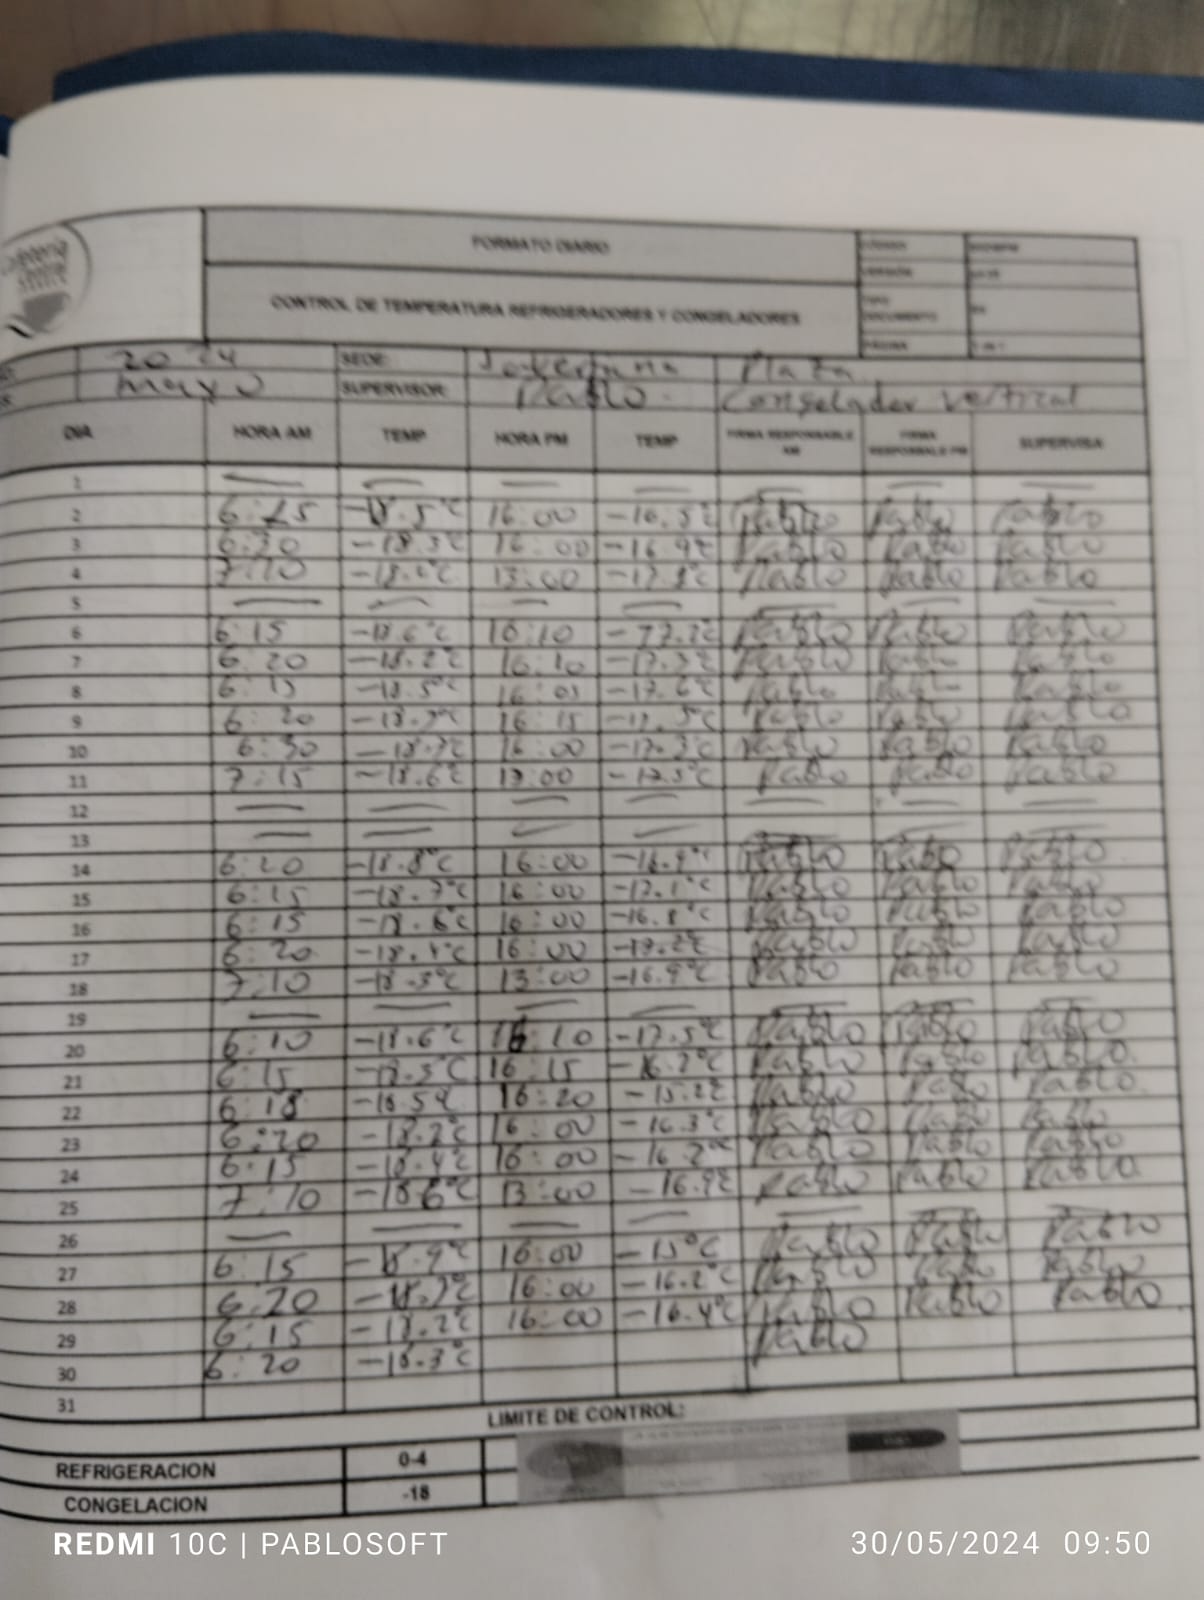 Cafetería
FORMATO DIARIO
CÓDIGO
VERSIÓN
CONTROL DE TEMPERATURA REFRIGERADORES Y CONGELADORES
TIPO DOCUMENTO
PÁGINA
2024 SEDE: Plaza
mayo SUPERVISOR: Pablo. Congelador vertical
DIA HORA AM TEMP HORA PM TEMP FIRMA RESPONSABLE AM FIRMA RESPONSABLE PM SUPERVISA
1 — — — — — — —
2 6:15 -18.5°C 16:00 -16.5°C Pablo Pablo Pablo
3 6:30 -18.3°C 16:00 -16.9°C Pablo Pablo Pablo
4 7:10 13:00 Pablo Pablo Pablo
5 — — — — — — —
6 6:15 -18.6°C 16:10 Pablo Pablo Pablo
7 6:20 -18.2°C 16:10 -17.3°C Pablo Pablo Pablo
8 6:15 -18.5°C 16:05 -17.6°C Pablo Pablo Pablo
9 6:20 16:15 Pablo Pablo Pablo
10 6:30 16:00 Pablo Pablo Pablo
11 7:15 -18.6°C 13:00 Pablo Pablo Pablo
12 — — — — — — —
13 — — — — — — —
14 6:20 -18.8°C 16:00 -16.9°C Pablo Pablo Pablo
15 6:15 -18.7°C 16:00 -17.1°C Pablo Pablo Pablo
16 6:15 -18.6°C 16:00 -16.8°C Pablo Pablo Pablo
17 6:20 -18.4°C 16:00 Pablo Pablo Pablo
18 7:10 -18.3°C 13:00 -16.9°C Pablo Pablo Pablo
19 — — — — — — —
20 6:10 -18.6°C 16:10 -17.5°C Pablo Pablo Pablo
21 6:15 16:15 Pablo Pablo Pablo.
22 6:18 16:20 -15.2°C Pablo Pablo Pablo.
23 6:20 -18.2°C 16:00 -16.3°C Pablo Pablo Pablo
24 6:15 -18.4°C 16:00 -16.2°C Pablo Pablo Pablo
25 7:10 -18.6°C 13:00 -16.9°C Pablo Pablo Pablo
26 — — — — — — —
27 6:15 -18.9°C 16:00 -15°C Pablo Pablo Pablo
28 6:20 16:00 -16.2°C Pablo Pablo Pablo
29 6:15 -18.2°C 16:00 -16.4°C Pablo Pablo Pablo
30 6:20 -18.3°C Pablo
31
LIMITE DE CONTROL:
REFRIGERACION 0-4
CONGELACION -18
REDMI 10C | PABLOSOFT 30/05/2024 09:50